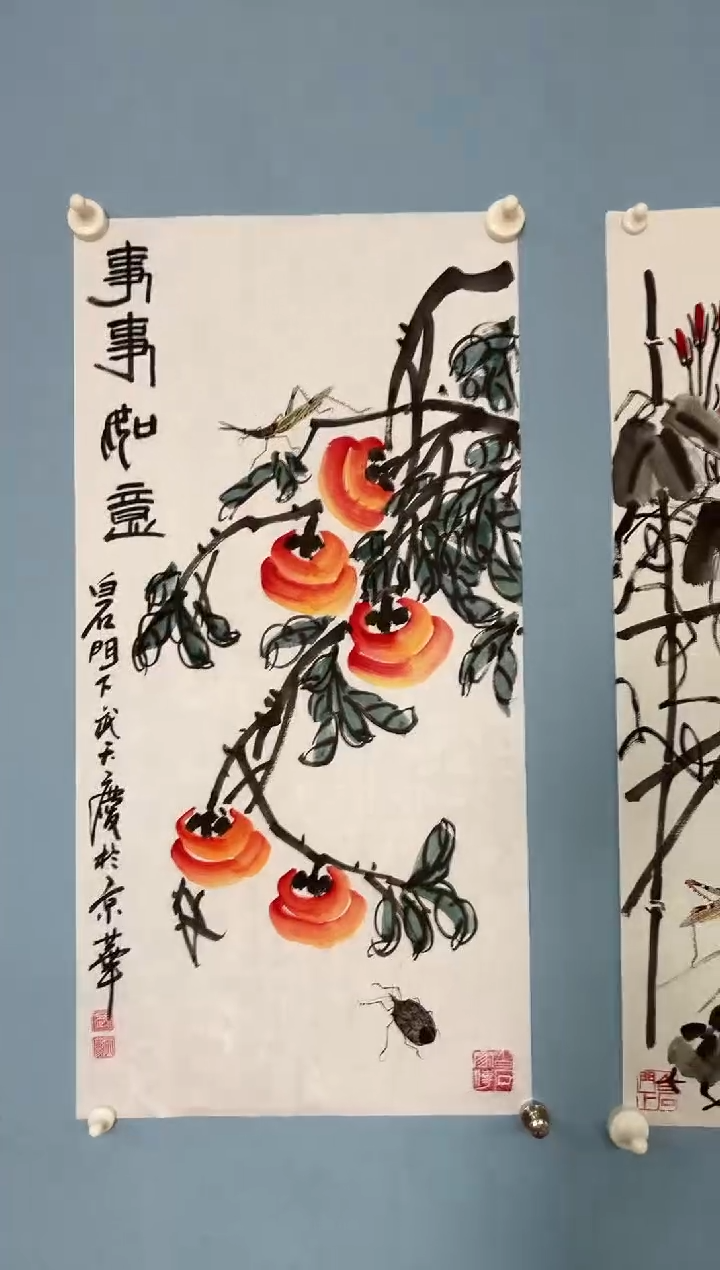 事事如意
白石門下武天慶於京華